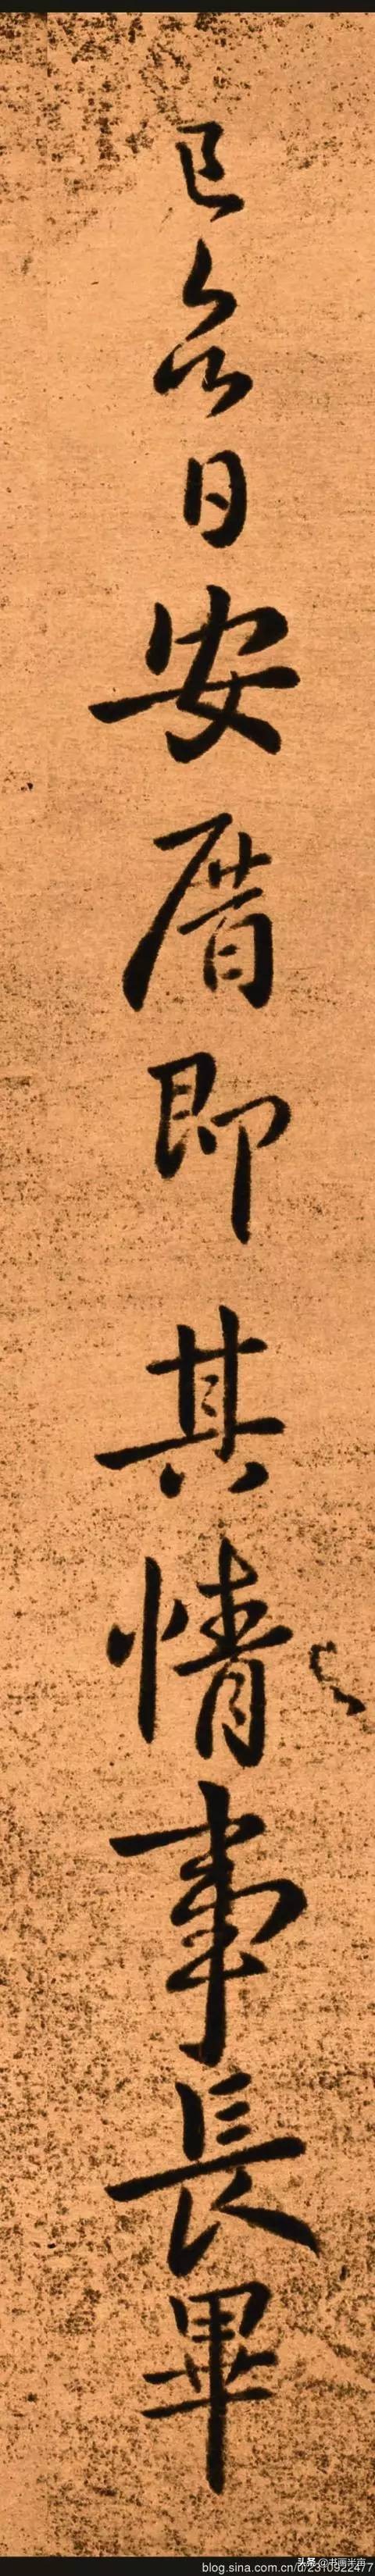 已日安厝即其情事長畢
头条 @书画半亩
blog.sina.com.cn/u/2310922477